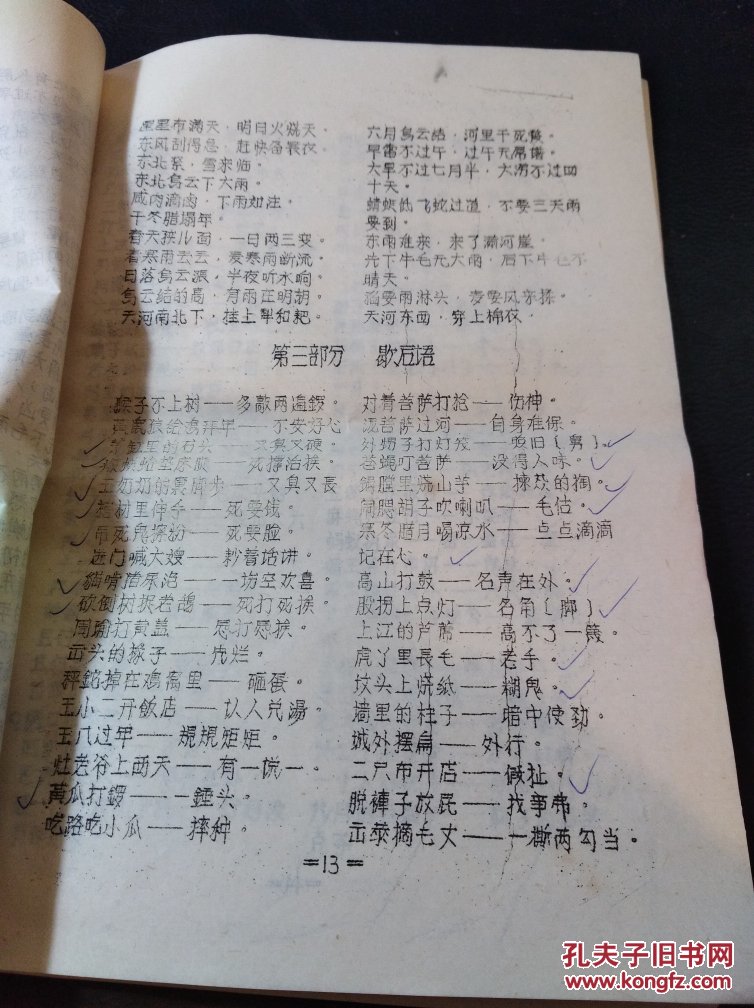 星星布满天，明日火烧天。
东风刮得急，赶快备蓑衣。
东北系，雪来临。
东北乌云下大雨。
咸肉滴卤，下雨如注。
干冬腊塌年。
春天孩儿面，一日两三变。
春寒雨云云，夏寒雨断流。
日落乌云派，半夜听水响。
乌云结的高，有雨在明朝。
天河南北下，挂上犁和耙。
六月乌云结，河里干死鳖。
早雷不过午，过午无常谱。
大旱不过七月半，大涝不过四
十天。
蜻蜓低飞蛇过道，不要三天雨
要到。
东雨难来，来了漏河崖。
先下牛毛无大雨，后下牛毛不
晴天。
要雨淋头，要风来揉。
天河东西，穿上棉衣，
第三部分 歇后语
猴子不上树——多敲两遍锣。
黄鼠狼给鸡拜年——不安好心
缸里的石头——又臭又硬。
死撑活挨。
王奶奶的裹脚步——又臭又長
棺材里伸手——死要钱。
吊死鬼搽粉——死要脸。
进门喊大嫂——抄着话讲。
貓啃猪尿泡——一场空欢喜。
砍倒树捉老鸹——死打死挨。
周瑜打黄盖——愿打愿挨。
出头的椽子——先烂。
秤鉈掉在鸡窩里——砸蛋。
王小二开飯店——认人兑湯。
王八过年——規規矩矩。
灶老爷上西天——有一说一。
黃瓜打鑼——一錘头。
吃路吃小瓜——摔种。
对着菩萨打抢——伤神。
泥菩萨过河——自身难保。
外甥子打灯笼——照旧〔舅〕。
苍蝇叮菩萨——没得人味。
鍋膛里烧山芋——揀熟的掏。
周腭胡子吹喇叭——毛估。
寒冬腊月喝凉水——点点滴滴
记在心。
高山打鼓——名声在外。
股拐上点灯——名角〔脚〕。
上江的芦蓆——高不了一篾。
虎丫里長毛——老手。
坟头上烧纸——糊鬼。
墙里的柱子——暗中使劲。
城外摆扁——外行。
二尺布开店——做扯。
脱褲子放屁——找事弗。
出恭摘毛丈——一撕两勾当。
=13=
孔夫子旧书网
www.kongfz.com